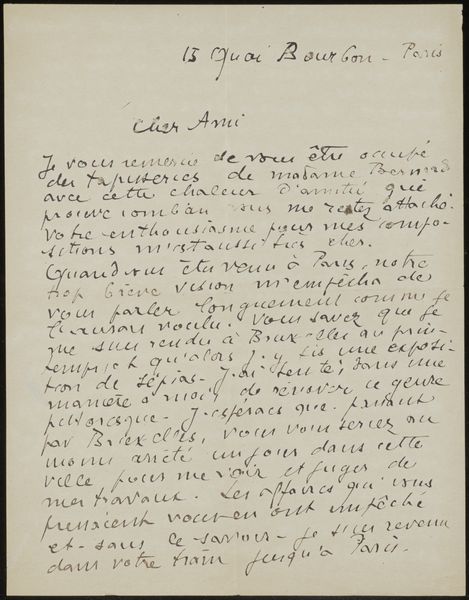 15 Quai Bourbon - Paris
Cher Ami
Je vous remercie de vous être occupé
des tapisseries de madame Bernard
avec cette chaleur d'amitié que
prouve combien vous me restez attaché.
Votre enthousiasme pour mes compo-
sitions m'est aussi très cher.
Quand vous êtes venu à Paris, notre
trop brève vision m'empêcha de
vous parler longuement comme je
l'aurais voulu. Vous savez que je
me suis rendu à Bruxelles au prin-
temps et qu'alors j'y fis une exposi-
tion de sépias. J'ai tenté, dans une
manière à moi, de rénover ce genre
pittoresque. J'espérais que passant
par Bruxelles, vous vous seriez au
moins arrêté un jour dans cette
ville pour me voir et juger de
mes travaux. Les affaires qui vous
pressaient vous en ont empêché
et - sans le savoir - je suis revenu
dans votre train jusqu'à Paris.